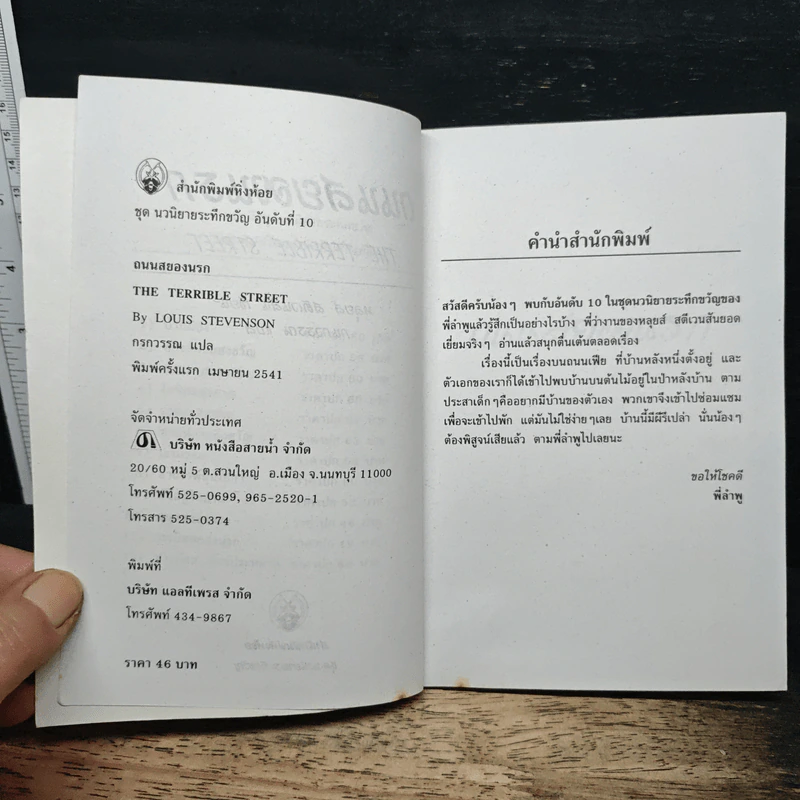 สำนักพิมพ์หิ่งห้อย
ชุด นวนิยายระทึกขวัญ อันดับที่ 10
ถนนสยองนรก
THE TERRIBLE STREET
By LOUIS STEVENSON
กรกวรรณ แปล
พิมพ์ครั้งแรก เมษายน 2541
จัดจำหน่ายทั่วประเทศ
บริษัท หนังสือสายน้ำ จำกัด
20/60 หมู่ 5 ต.สวนใหญ่ อ.เมือง จ.นนทบุรี 11000
โทรศัพท์ 525-0699, 965-2520-1
โทรสาร 525-0374
พิมพ์ที่
บริษัท แอลทีเพรส จำกัด
โทรศัพท์ 434-9867
ราคา 46 บาท
คำนำสำนักพิมพ์
สวัสดีครับน้องๆ พบกับอันดับ 10 ในชุดนวนิยายระทึกขวัญของ
พี่ลำพูแล้วรู้สึกเป็นอย่างไรบ้าง พี่ว่างานของหลุยส์ สตีเวนสันยอด
เยี่ยมจริงๆ อ่านแล้วสนุกตื่นเต้นตลอดเรื่อง
เรื่องนี้เป็นเรื่องบนถนนเฟีย ที่บ้านหลังหนึ่งตั้งอยู่ และ
ตัวเอกของเราก็ได้เข้าไปพบบ้านบนต้นไม้อยู่ในป่าหลังบ้าน ตาม
ประสาเด็กๆคืออยากมีบ้านของตัวเอง พวกเขาจึงเข้าไปซ่อมแซม
เพื่อจะเข้าไปพัก แต่มันไม่ใช่ง่ายๆเลย บ้านนี้มีผีรึเปล่า นั่นน้องๆ
ต้องพิสูจน์เสียแล้ว ตามพี่ลำพูไปเลยนะ
ขอให้โชคดี
พี่ลำพู
16
15
14
13
12